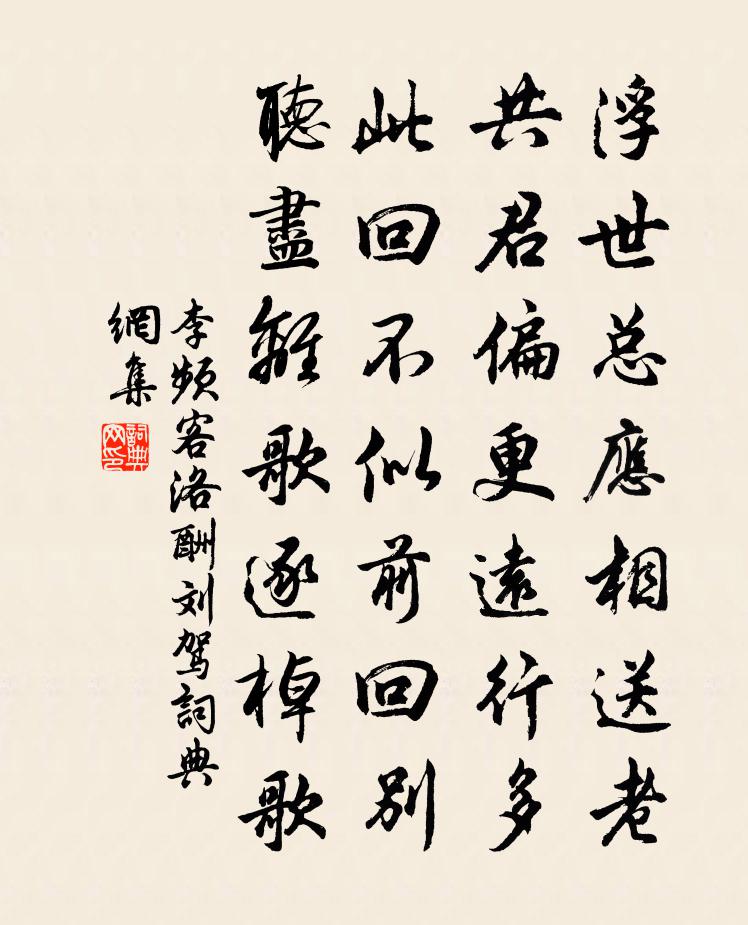 浮世总應相送老
共君偏更遠行多
此回不似前回别
聽盡離歌逐棹歌
李频客洛酬刘驾詞典
網集
詞典
网印